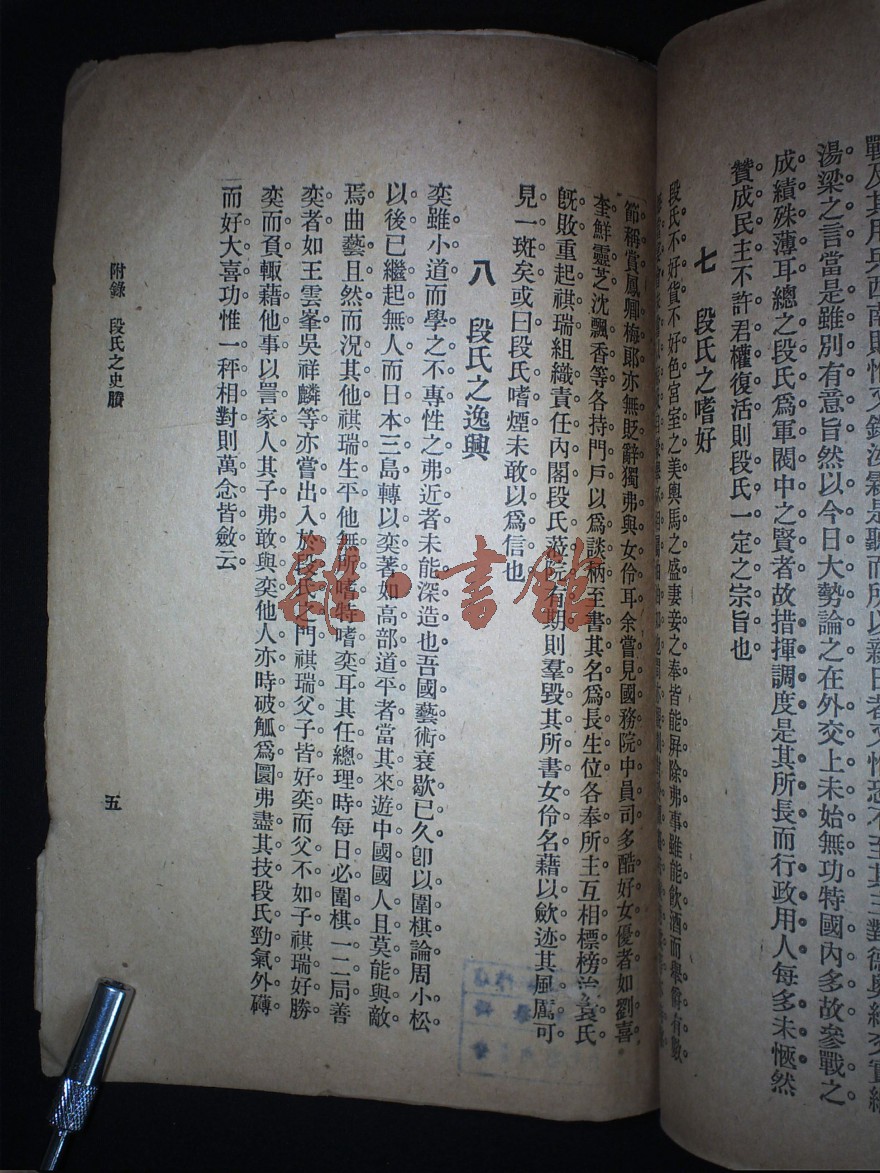 戰及其用兵西南則惟又錚
湯梁之言當是雖別有意旨然以今日大勢論之在外交上未始無功特國內多故參戰之
成績殊薄耳總之段氏爲軍閥中之賢者故措揮調度是其所長而行政用人每多未愜然
贊成民主不許君權復活則段氏一定之宗旨也
七 段氏之嗜好
段氏不好貨不好色宮室之美輿馬之盛妻妾之奉皆能屛除弗事雖能飮酒而舉觴有數
節稱賞鳳卿梅郞亦無貶辭獨弗與女伶耳余嘗見國務院中員司多酷好女優者如劉喜
奎鮮靈芝沈飄香等各持門戶以爲談柄至書其名爲長生位各奉所主互相標榜洎袁氏
旣敗重起祺瑞組織責任內閣段氏蒞院有期則羣毀其所書女伶名藉以斂迹其風厲可
見一斑矣或曰段氏嗜煙未敢以爲信也
八 段氏之逸興
奕雖小道而學之不專性之弗近者未能深造也吾國藝術衰歇已久卽以圍棋論周小松
以後已繼起無人而日本三島轉以奕著如高部道平者當其來游中國國人且莫能與敵
焉曲藝且然而況其他祺瑞生平他無所嗜特嗜奕耳其任總理時每日必圍棋一二局善
奕者如王雲峯吳祥麟等亦嘗出入於段氏之門祺瑞父子皆好奕而父不如子祺瑞好勝
奕而負輒藉他事以詈家人其子弗敢與奕他人亦時破觚爲圜弗盡其技段氏勁氣外磚
而好大喜功惟一枰相對則萬念皆斂云
附錄 段氏之史賸
五
雜·書館